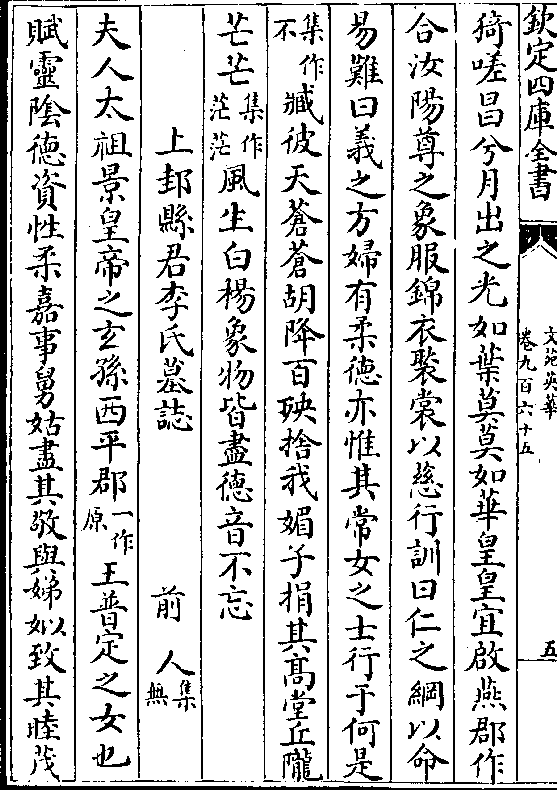 欽定四庫全書
文苑英華
卷九百六十五
五
猗嗟昌兮月出之光如葉莫莫如華皇皇宜啟燕郡作
合汝陽尊之象服錦衣褧裳以慈行訓曰仁之綱以命
易難曰義之方婦有柔德亦惟其常女之士行于何是
集作不臧彼天蒼蒼胡降百殃捨我媚子捐其高堂丘隴
芒芒集作茫茫風生白楊象物皆盡德音不忘
上邽縣君李氏墓誌 前人集無
夫人太祖景皇帝之玄孫西平郡一作原王普定之女也
賦靈陰德資性柔嘉事舅姑盡其敬與娣姒致其睦茂